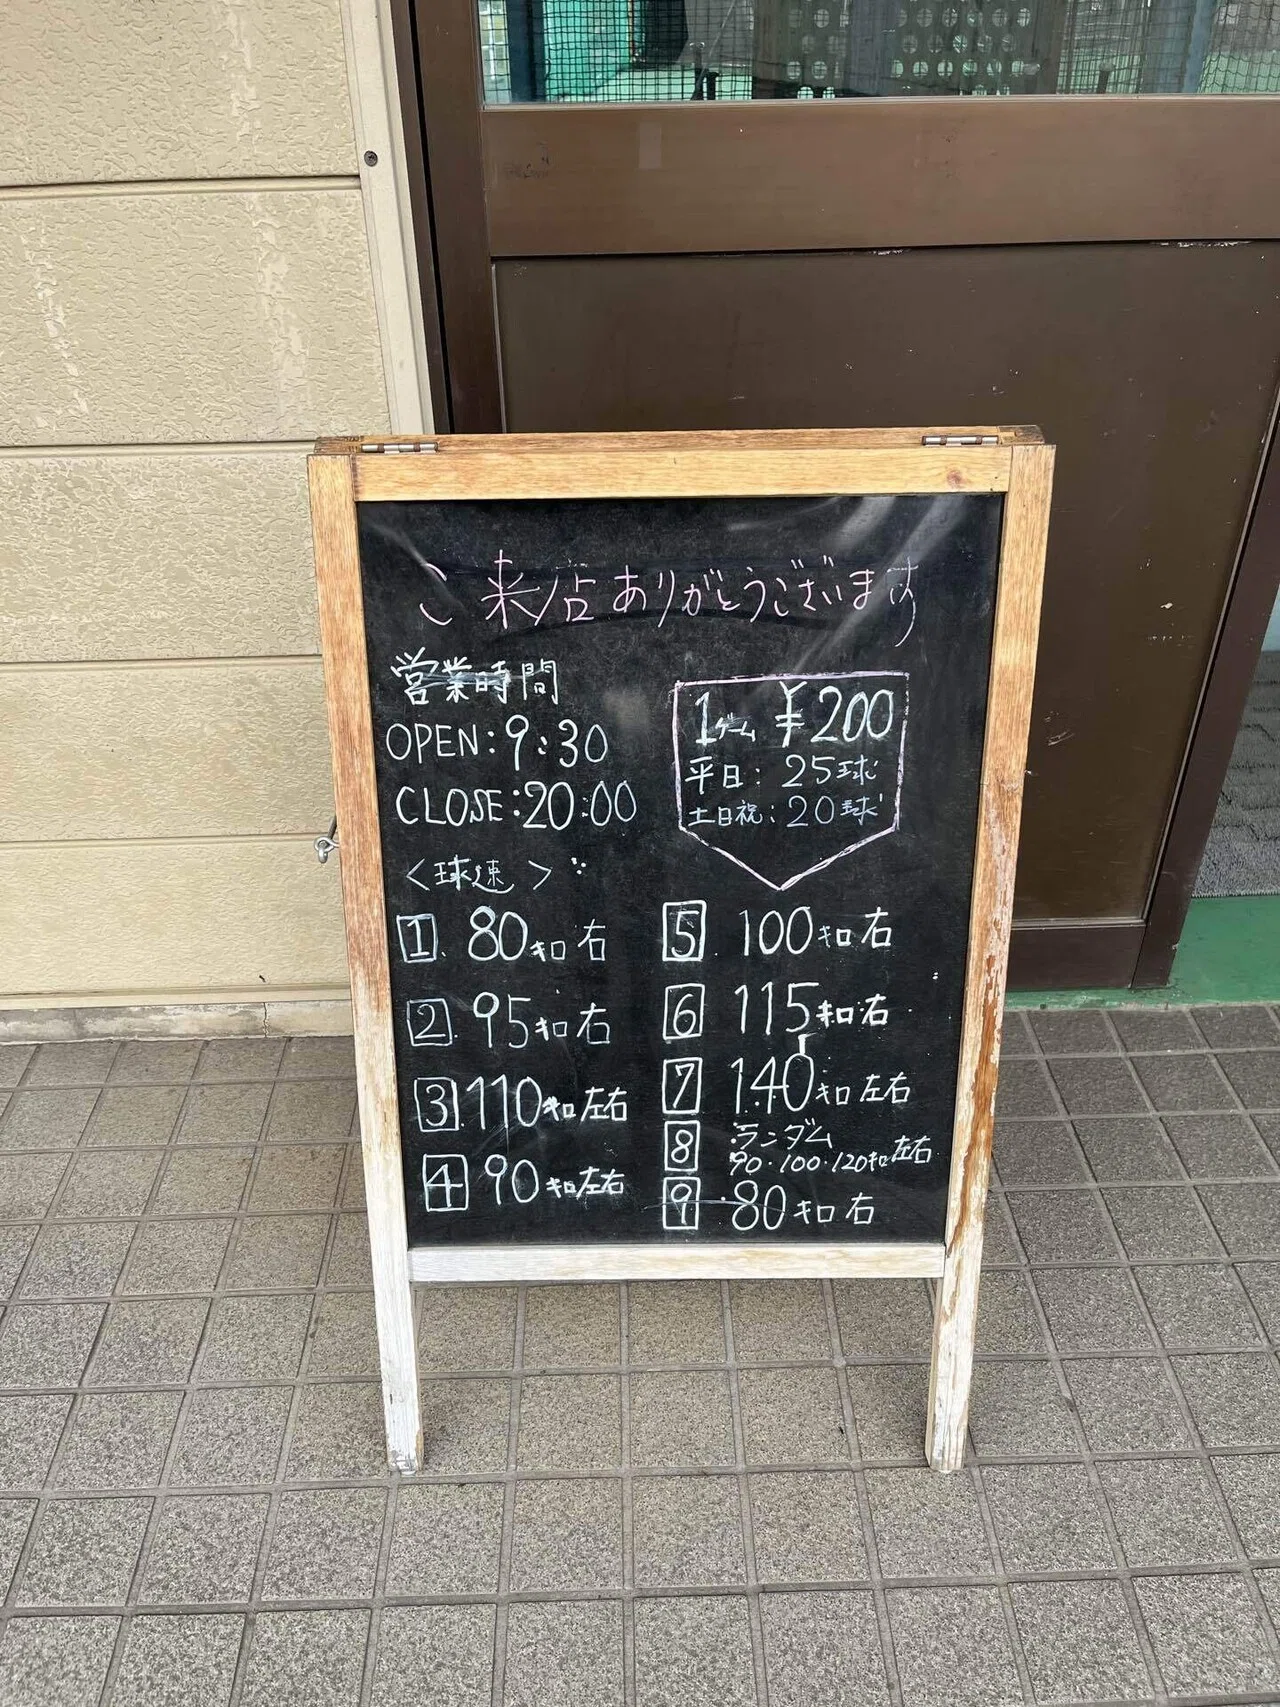 ご来店ありがとうございます
営業時間
OPEN:9:30
CLOSE:20:00
1ゲーム ¥200
平日:25球
土日祝:20球
<球速>
1 80キロ 右
2 95キロ 右
3 110キロ 左右
4 90キロ 左右
5 100キロ 右
6 115キロ 右
7 140キロ 左右
8 ランダム
90・100・120キロ 左右
9 80キロ 右